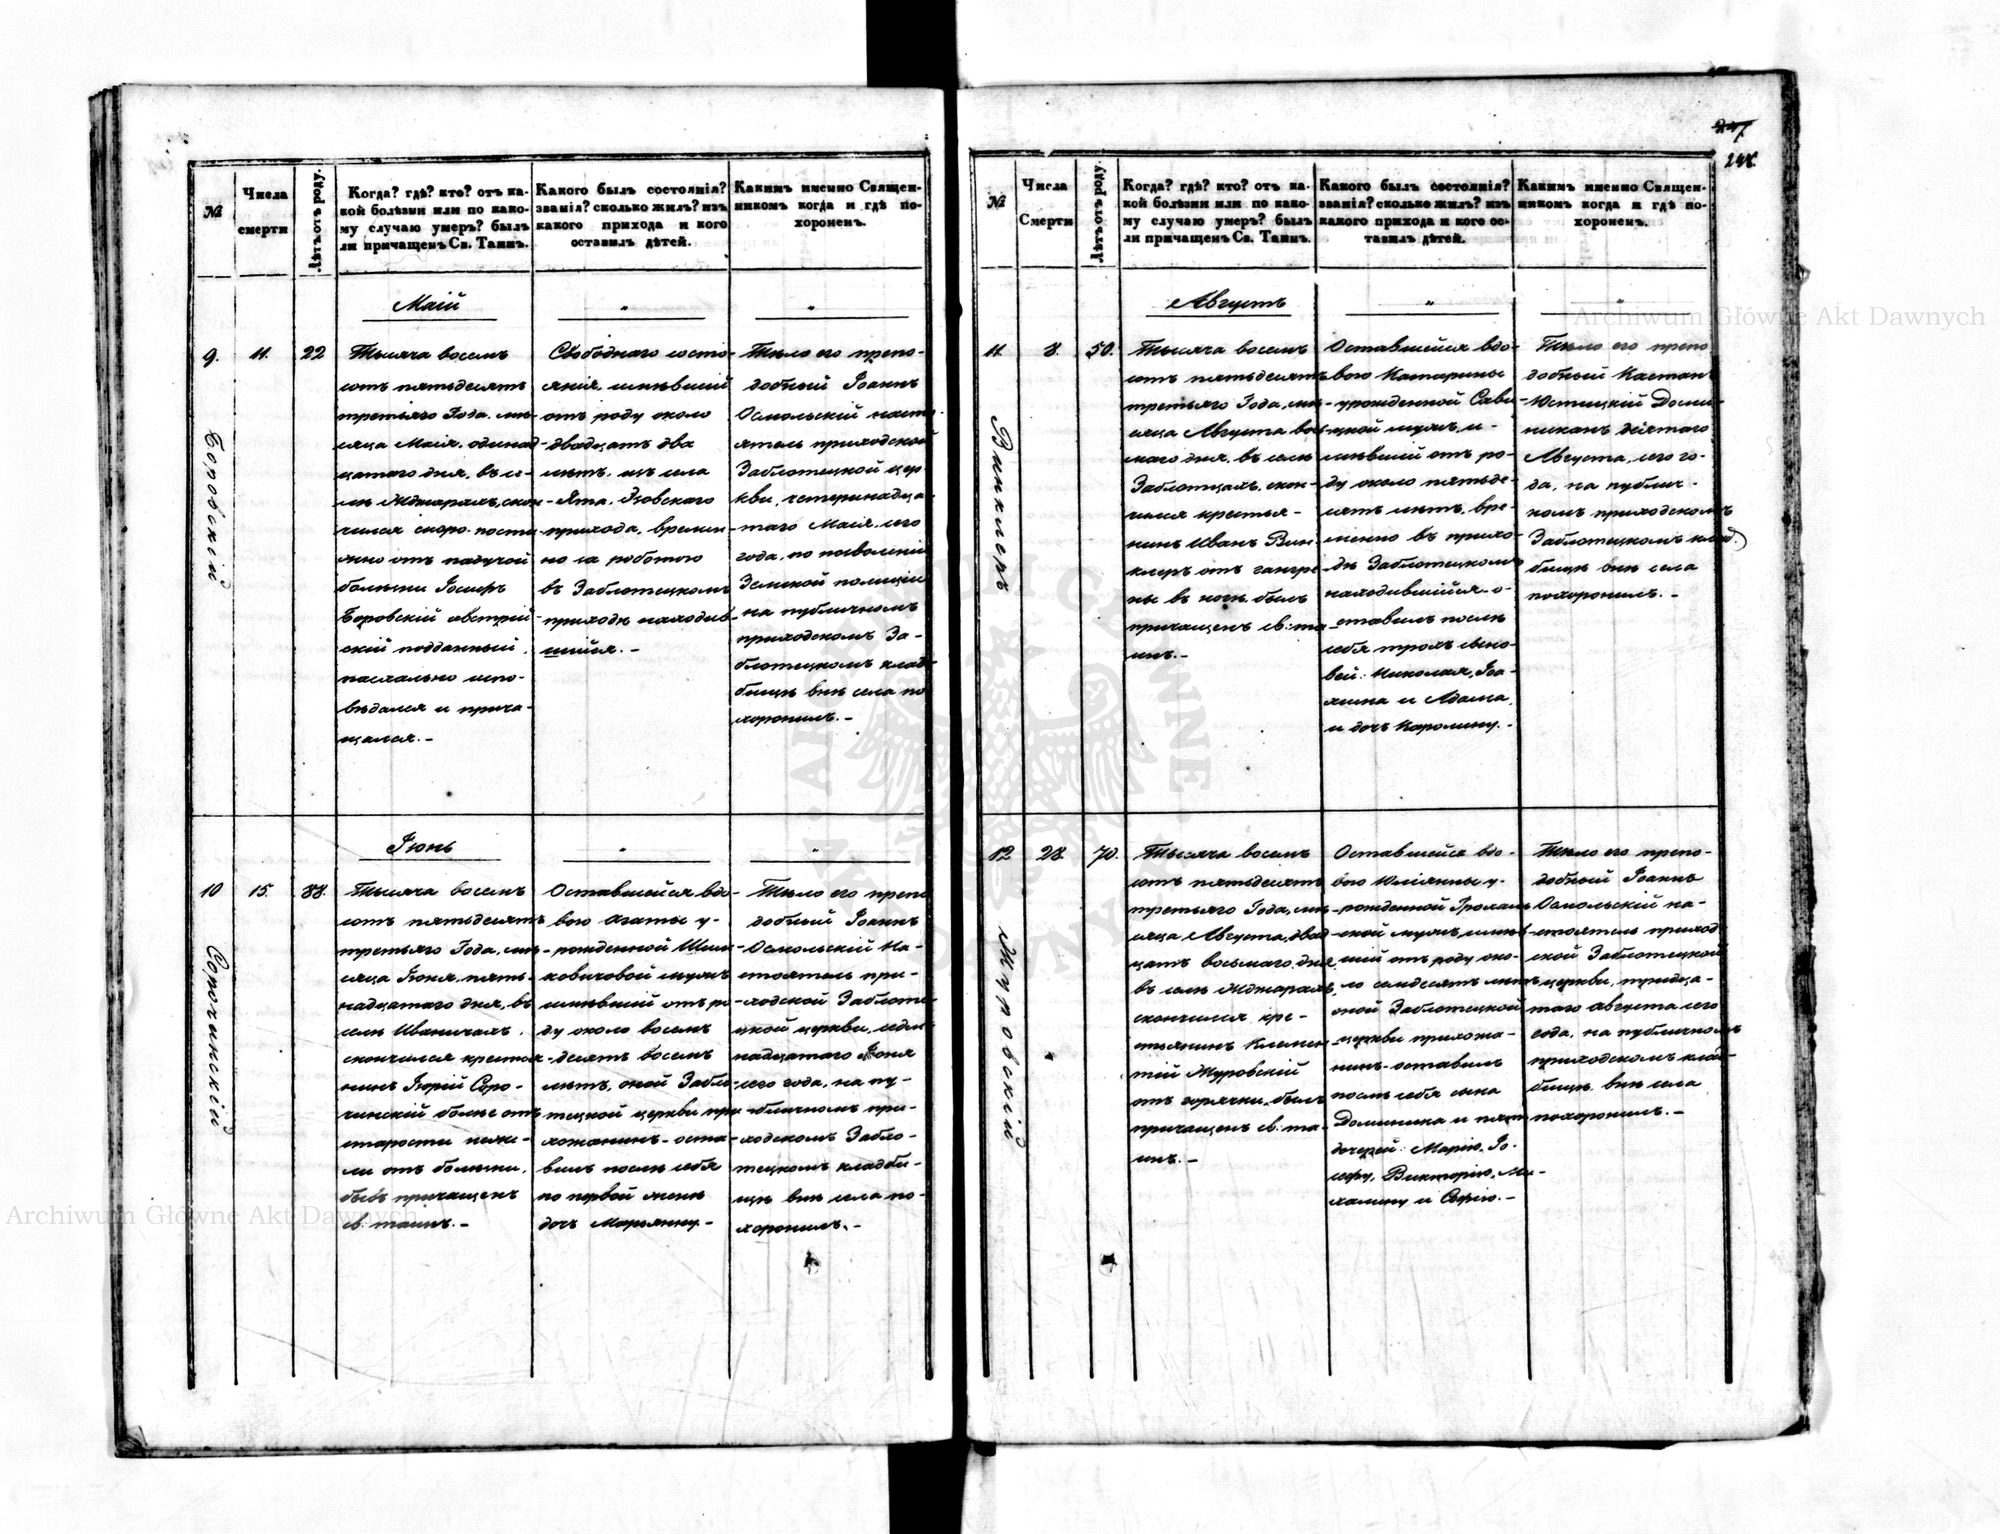 247
248.
№
Числа
смерти
Лѣтъ отъ роду.
Когда? гдѣ? кто? отъ ка-
кой болѣзни или по како-
му случаю умеръ? былъ
ли причащенъ Св. Таинъ.
Какого былъ состоянія?
званія? сколько жилъ? изъ
какого прихода и кого
оставилъ дѣтей.
Какимъ именно Священ-
никомъ когда и гдѣ по-
хороненъ.
Маій
"
"
9.
11.
22
Боровскій
Тысяча восемъ
сотъ пятьдесятъ
третьяго Года, мѣ-
сяца Маія, одинад-
цатаго дня, въ се-
лѣ Жджарахъ, скон-
чился скоро-пости-
жно отъ падучой
болѣзни Іосифъ
Боровскій австрій-
скій подданный,
пасхально испо-
вѣдался и прича-
щался. -
Свободнаго состо-
янія, имѣвшій
отъ роду около
двадцать два
лѣтъ, изъ села
прихода, времен-
но за роботою
въ Заблотецкомъ
приходѣ находив-
шийся. -
Тѣло его препо-
добный Іоаннъ
Осмольскій насто-
ятель приходской
Заблотецкой цер-
кви, четеринадца-
таго Маія, сего
года, по позволенію
Земской полиціи
на публичномъ
приходскомъ За-
блотецкомъ клад-
бищѣ внѣ села по
хоронилъ. -
Іюнь
"
"
10
15.
88.
Сорочинскій
Тысяча восемъ
сотъ пятьдесятъ
третьяго Года, мѣ-
сяца Іюня, пять-
надцатаго дня, въ
селѣ Иваничахъ,
скончился крестья-
нинъ Юрій Соро-
чинскій болѣе отъ
старости нежи-
ли отъ болѣзни,
бывъ причащенъ
св. таинъ. -
Оставшейся вдо-
вою Агаты у-
рожденной Шим-
ковичовой мужъ
имѣвшій отъ ро-
ду около восемъ
десятъ восемъ
лѣтъ, оной Забло-
тецкой церкви при
хожанинъ - оста-
вилъ послѣ себя
по первой женѣ
дочь Марьянну -
Тѣло его препо
добный Іоаннъ
Осмольскій На-
стоятель при-
ходской Заблоте-
цкой церкви, седм-
надцатаго Іюня
сего года, на пу-
бличномъ при-
ходскомъ Забло-
тецкомъ кладби-
щѣ внѣ села по-
хоронилъ. -
№
Числа
Смерти
Лѣтъ отъ роду.
Когда? гдѣ? кто? отъ ка-
кой болѣзни или по како-
му случаю умеръ? былъ
ли причащенъ Св. Таинъ.
Какого былъ состоянія?
званія? сколько жилъ? изъ
какого прихода и кого ос-
тавилъ дѣтей.
Какимъ именно Священ-
никомъ когда и гдѣ по-
хороненъ.
Августъ
"
"
11.
8.
50.
Винклеръ
Тысяча восемъ
сотъ пятьдесятъ
третьяго Года, мѣ-
сяца Августа вось-
маго дня, въ селѣ
Заблотцахъ, скон-
чился крестья-
нинъ Иванъ Вин
клеръ отъ гангре
ны въ ногѣ, былъ
причащенъ св: та-
инъ. -
Оставшейся вдо-
вою Катарины
урожденной Сави-
цкой мужъ, и-
мѣвшій отъ ро-
ду около пятьде-
сятъ лѣтъ, вре-
менно въ прихо-
дѣ Заблотецкомъ
находившійся - о-
ставилъ послѣ
себя трохъ сыно-
вей: Николая, Іоа-
хима и Адама,
и дочь Каролину. -
Тѣло его препо
добный Каетанъ
Юстицкій Доми-
никанъ девятого
Августа, сего го-
да, на публич-
номъ приходскомъ
Заблотецкомъ клад
бищѣ внѣ села
похоронилъ. -
12
28.
70.
Журовскій
Тысяча восемъ
сотъ пятьдесятъ
третьяго Года, мѣ-
сяца Августа, двад
цать восьмаго дня
въ селѣ Жджарахъ,
скончился кре-
стьянинъ Климен-
тій Журовскій
отъ горячки, былъ
причащенъ св: та-
инъ. -
Оставшейся вдо-
вою Юліянны у-
цкой мужъ, имѣв-
шій отъ роду око-
ло семдесятъ лѣтъ,
оной Заблотецкой
церкви прихожа-
нинъ - оставилъ
послѣ себя сына
Доминика и пять
дочерей: Марію, Іо-
сефу, Викторію, Ми-
халину и Софію. -
Тѣло его препо-
добный Іоаннъ
Осмольскій на-
стоятель приход
ской Заблотецкой
церкви, тридца-
таго августа сего
года, на публичномъ
приходскомъ клад-
бищѣ внѣ села
похоронилъ. -
Archiwum Główne Akt Dawnych
Archiwum Główne Akt Dawnych